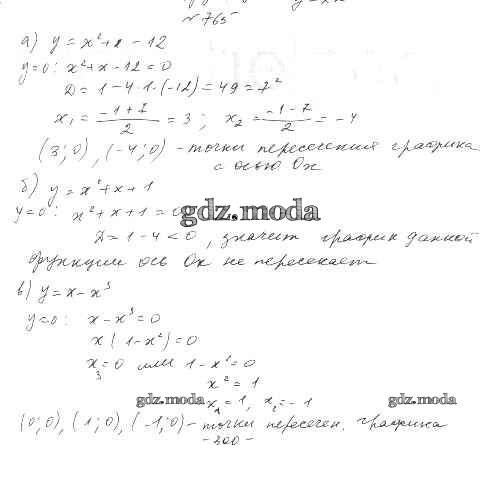 №765
а) y = x² + x - 12
y=0: x² + x - 12 = 0
D = 1 - 4·1·(-12) = 49 = 7²
x₁ = (-1+7)/2 = 3; x₂ = (-1-7)/2 = -4
(3;0), (-4;0) - точки пересечения графика
с осью Ox
б) y = x² + x + 1
y=0: x² + x + 1 = 0
gdz.moda
D = 1 - 4 < 0, значит график данной
функции ось Ox не пересекает
в) y = x - x³
y=0: x - x³ = 0
x(1 - x²) = 0
x₃ = 0 или 1 - x² = 0
x² = 1
gdz.moda x₁ = 1, x₂ = -1 gdz.moda
(0;0), (1;0), (-1;0) - точки пересечен. графика
-300-